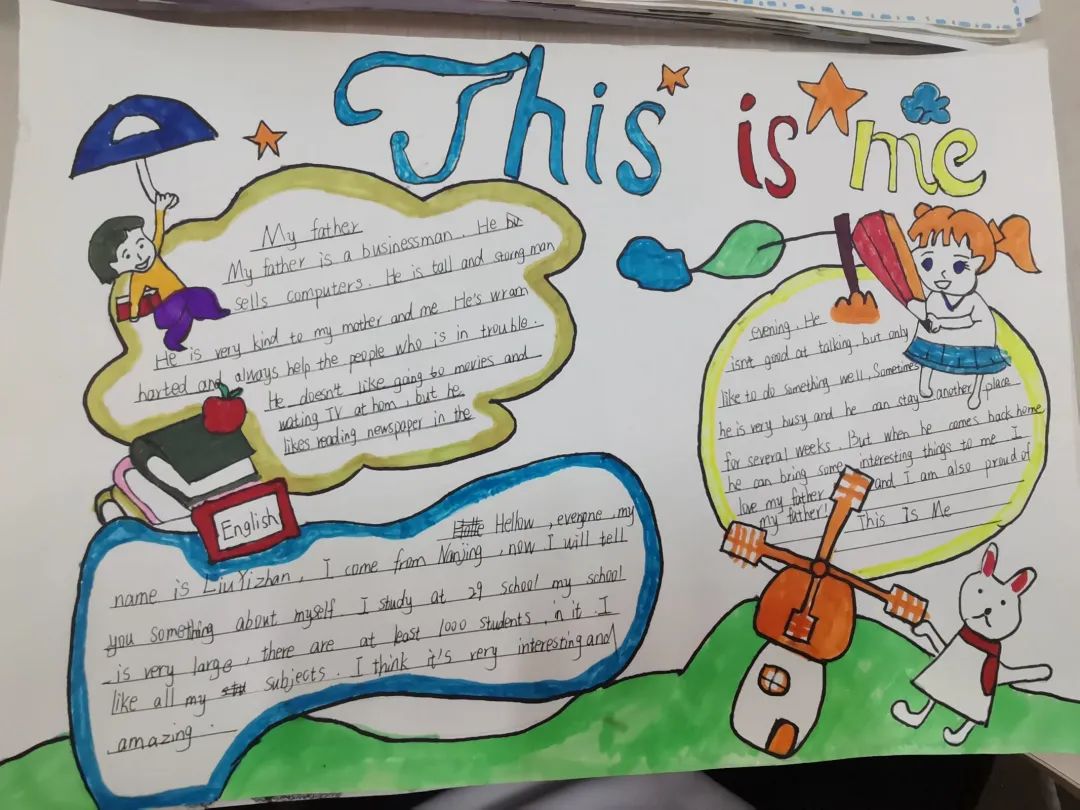 This is me
My father
My father is a businessman. He
sells computers. He is tall and storng man
He is very kind to my mother and me. He's wram
harted and always help the people who is in trouble.
He doesn't like going to movies and
wating TV at hom, but he
likes reading newspaper in the
evening. He
isn't good at talking, but only
like to do something well, Sometimes
he is very busy and he can stay another place
for several weeks. But when he comes back home
he can bring some interesting things to me I
love my father and I am also proud of
my father! This Is Me
English
Hellow, everyone, my
name is LiuYizhan, I come from Nanjing, now I will tell
you something about myself I study at 29 school my school
is very large, there are at least 1000 students, in it. I
like all my subjects. I think it's very interesting and
amazing.